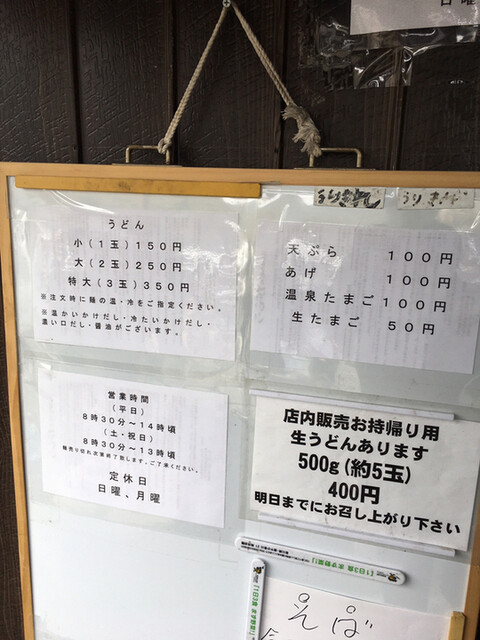 日曜
うりきれ
うりきれ
うどん
小(1玉)150円
大(2玉)250円
特大(3玉)350円
※注文時に麺の温・冷をご指定ください。
※温かいかけだし・冷たいかけだし・
濃い口だし・醤油がございます。
天ぷら 100円
あげ 100円
温泉たまご 100円
生たまご 50円
営業時間
(平日)
8時30分~14時頃
(土・祝日)
8時30分~13時頃
麺売り切れ次第終了致します。ご了承ください。
定休日
日曜、月曜
店内販売お持帰り用
生うどんあります
500g(約5玉)
400円
明日までにお召し上がり下さい
「1日3食 まず野菜!」
「1日3食 まず野菜!」
そば